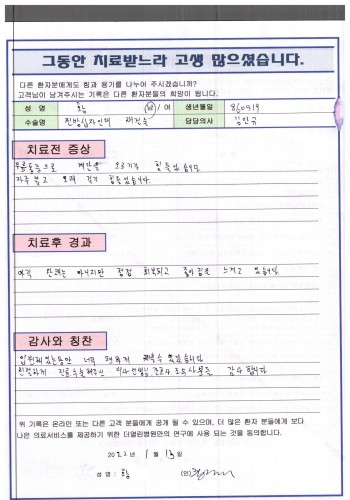 그동안 치료받느라 고생 많으셨습니다.
다른 환자분에게도 힘과 용기를 나누어 주시겠습니까?
고객님이 남겨주시는 기록은 다른 환자분들의 희망이 됩니다.
성 명 황 남 / 여 생년월일 860919
수술명 전방십자인대 재건술 담당의사 김민규
치료전 증상
무릎통증으로 계단을 오르기가 힘들었습니다
자주 붓고 오래 걷기 힘들었습니다
치료후 경과
아직 완쾌는 아니지만 점점 회복되고 좋아짐을 느끼고 있습니다
감사와 칭찬
입원해있는동안 너무 편하게 있습니다
친절하게 간호사 감사합니다
위 기록은 온라인 또는 다른 고객 분들에게 공개 될 수 있으며, 더 많은 환자 분들에게 보다
나은 의료서비스를 제공하기 위한 더열린병원만의 연구에 사용 되는 것을 동의합니다.
2022년 1월 13일
성 명 : 황 (인)